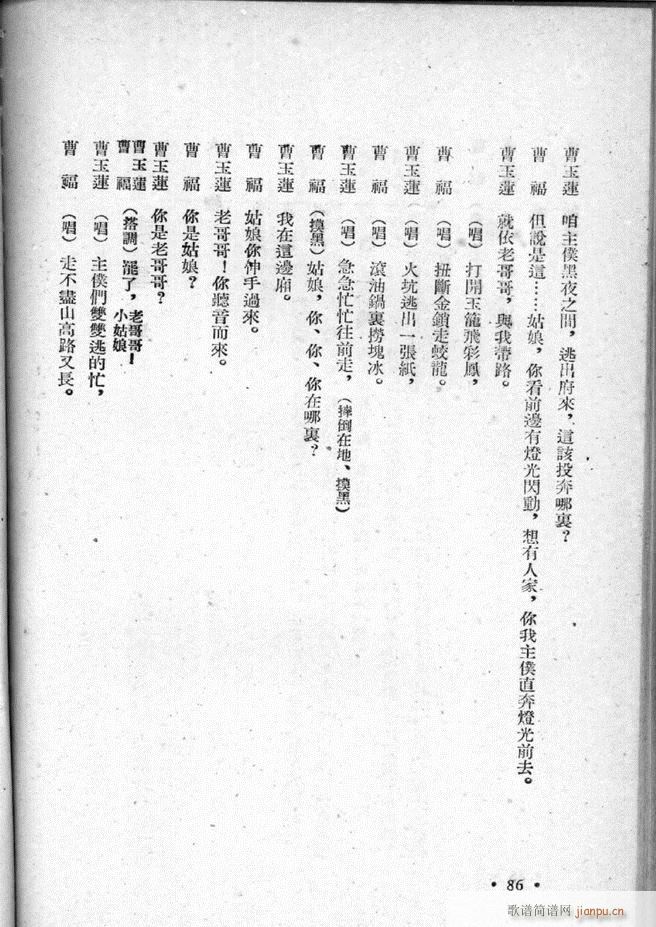 曹玉蓮　咱主僕黑夜之間，逃出府來，這該投奔哪裏？
曹　福　但說是這……姑娘，你看前邊有燈光閃動，想有人家，你我主僕直奔燈光前去。
曹玉蓮　就依老哥哥，與我帶路。
（唱）打開玉籠飛彩鳳，
曹　福　（唱）扭斷金鎖走蛟龍。
曹玉蓮　（唱）火坑逃出一張紙，
曹　福　（唱）滾油鍋裏撈塊冰。
曹玉蓮　（唱）急急忙忙往前走，（摔倒在地、摸黑）
曹　福　（摸黑）姑娘，你、你、你在哪裏？
曹玉蓮　我在這邊廂。
曹　福　姑娘你伸手過來。
曹玉蓮　老哥哥！你聽音而來。
曹　福　你是姑娘？
曹玉蓮　你是老哥哥？
曹玉蓮
曹　福　（搭調）罷了，老哥哥！
小姑娘
曹玉蓮　（唱）主僕們雙雙逃的忙，
曹　福　（唱）走不盡山高路又長。
• 86 •
歌谱简谱网 jianpu.cn